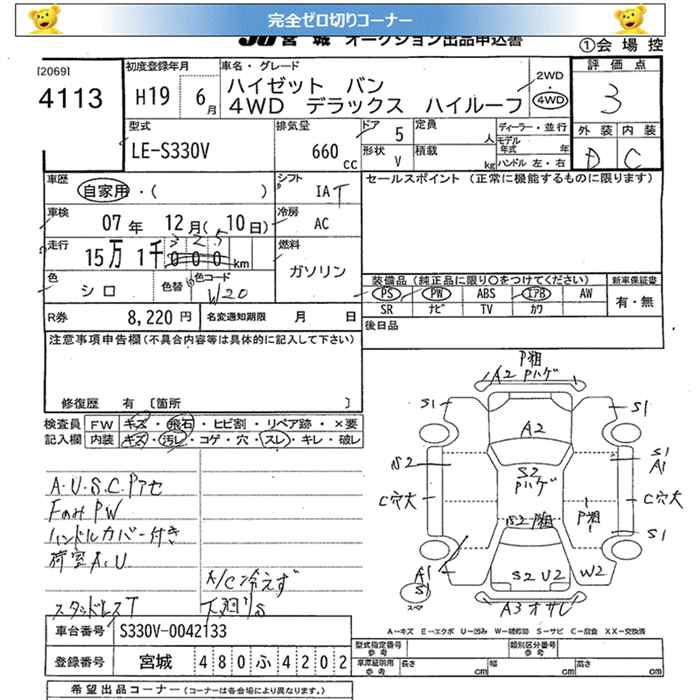 完全ゼロ切りコーナー
JU 宮城 オークション出品申込書
①会場控
[2069]
4113
初度登録年月
H19 6月
車名・グレード
ハイゼット バン
4WD デラックス ハイルーフ
2WD
4WD
評価点
3
外装 内装
D C
型式
LE-S330V
排気量
660 cc
ドア 5
形状 V
定員 人
積載 kg
ディーラー・並行
モデル年式 年
ハンドル 左・右
車歴
自家用・( )
シフト
IAT
セールスポイント (正常に機能するものに限ります)
車検
07年 12月(10日)
冷房
AC
走行
15万 1千 000 km
325
燃料
ガソリン
色
シロ
色替
色コード
W20
装備品 (純正品に限り○をつけてください)
PS PW ABS エアB AW
SR ナビ TV カワ
新車保証書
有・無
R券
8,220円
名変通知期限 月 日
後日品
注意事項申告欄(不具合内容等は具体的に記入して下さい)
修復歴 有 [箇所 ]
検査員記入欄
FW キズ・飛石・ヒビ割・リペア跡・×要
内装 キズ・汚レ・コゲ・穴・スレ・キレ・破レ
A.U.S.C.Pアセ
FのみPW
ハンドルカバー付き
荷室A.U
A/C冷えず
下廻りS
スタッドレスT
P粗
A2 Pハゲ
S1
S1
A2
S2
S2
Pハゲ
S1
A1
C穴大
C穴大
P粗
S2 P粗
S1
A1
S1
スペア
S2 U2
W2
A3 オサレ
A-キズ E-エクボ U-凹み W-補修跡 S-サビ C-腐食 XX-交換済
車台番号
S330V-0042133
登録番号
宮城 480 ふ 4202
型式指定番号
類別区分番号
車庫証明用参考
長さ cm
幅 cm
高さ cm
希望出品コーナー (コーナーは各会場により異なります。)